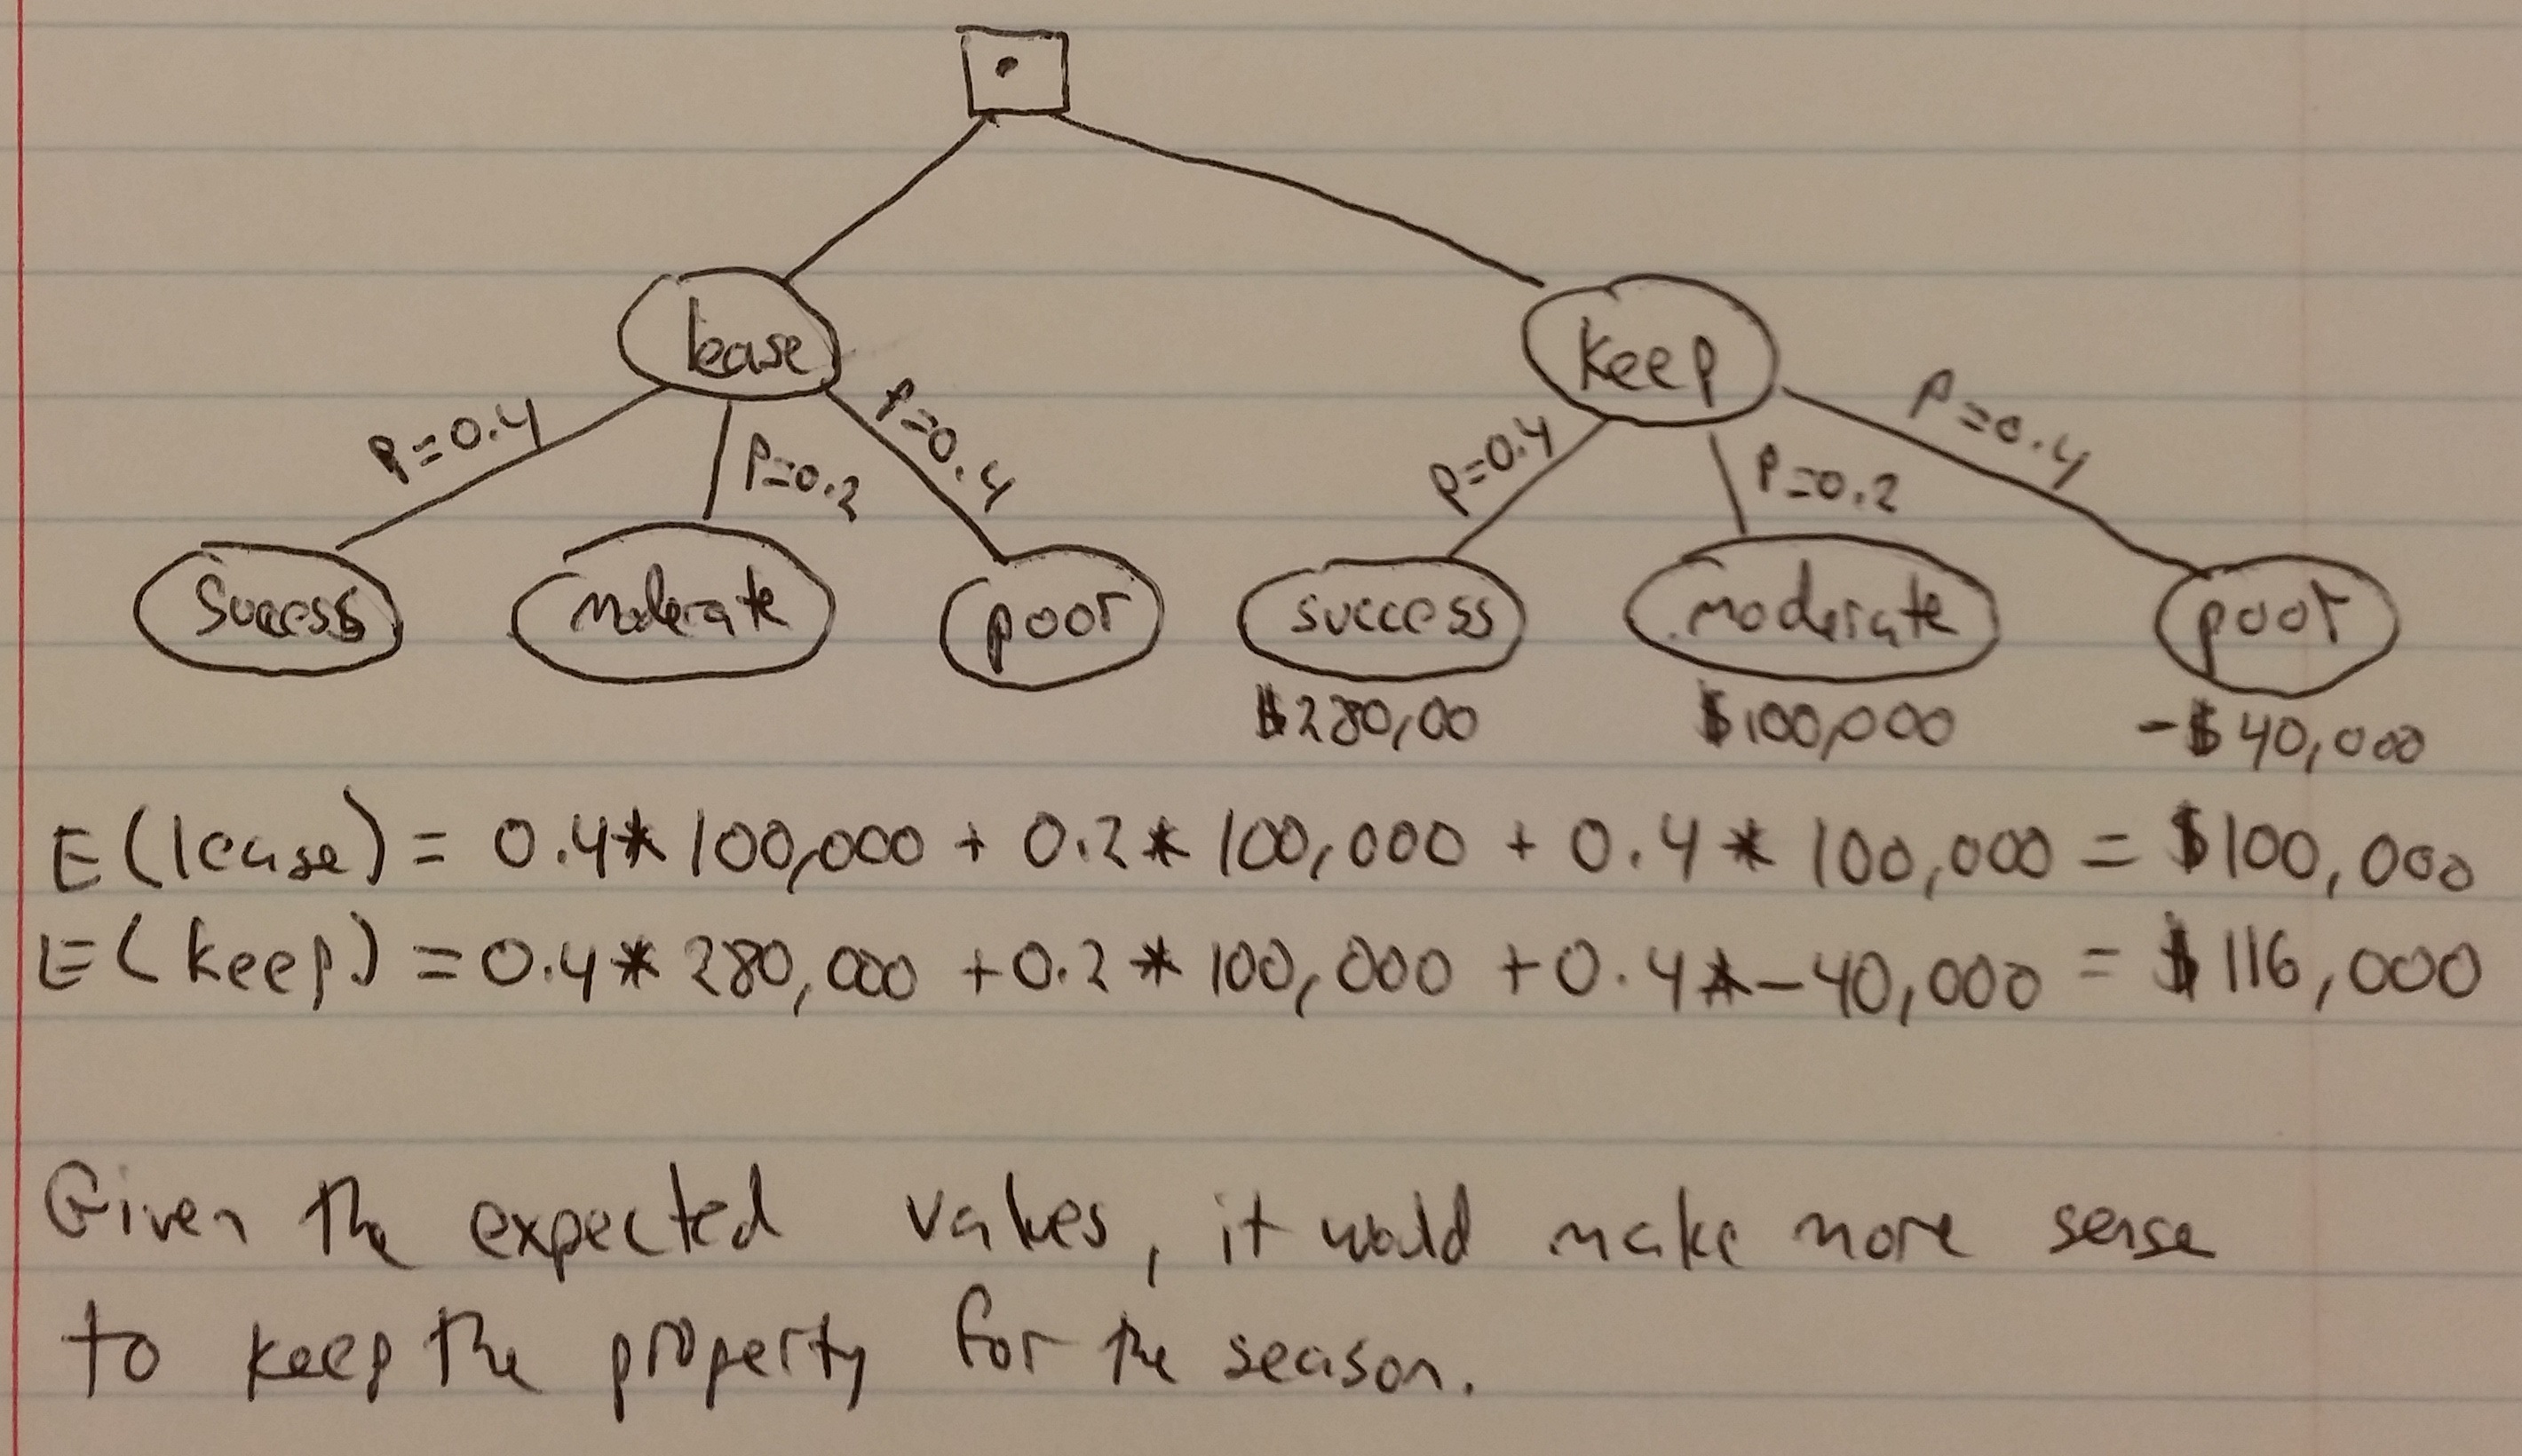 lease
keep
P=0.4
P=0.2
P=0.4
P=0.4
P=0.2
P=0.4
Success
moderate
poor
success
moderate
poor
$280,00
$100,000
-$40,000
E(lease) = 0.4*100,000 + 0.2*100,000 + 0.4*100,000 = $100,000
E(keep) = 0.4*280,000 + 0.2*100,000 + 0.4*-40,000 = $116,000
Given the expected values, it would make more sense
to keep the property for the season.